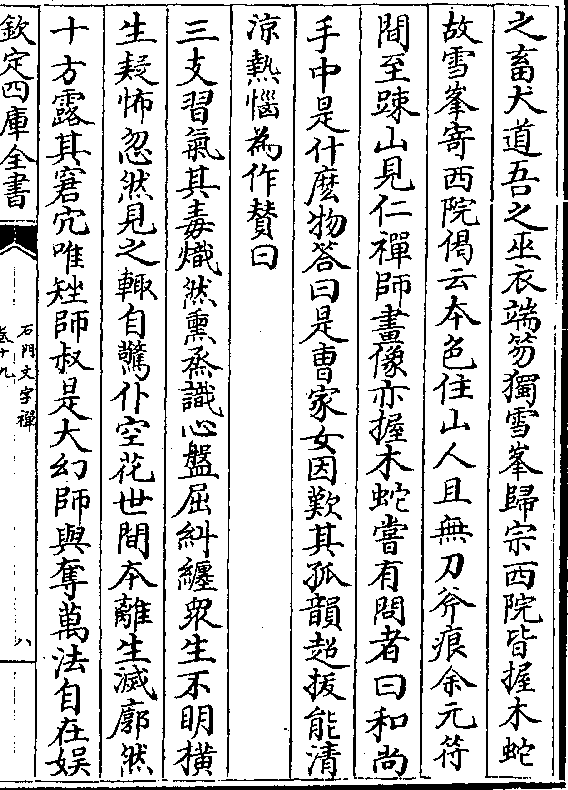 之畜犬道吾之巫衣端笏獨雪峯歸宗西院皆握木蛇
故雪峯寄西院偈云本色住山人且無刀斧痕余元符
間至踈山見仁禪師畫像亦握木蛇嘗有問者曰和尚
手中是什麽物答曰是曹家女因歎其孤韻超拔能清
凉熱惱為作賛曰
三支習氣其毒熾然熏烝識心盤屈糾纏衆生不明橫
生疑怖忽然見之輙自驚仆空花世間本離生滅廓然
十方露其窘宂唯矬師叔是大幻師與奪萬法自在娱
欽定四庫全書
石門文字禪
卷十九
八